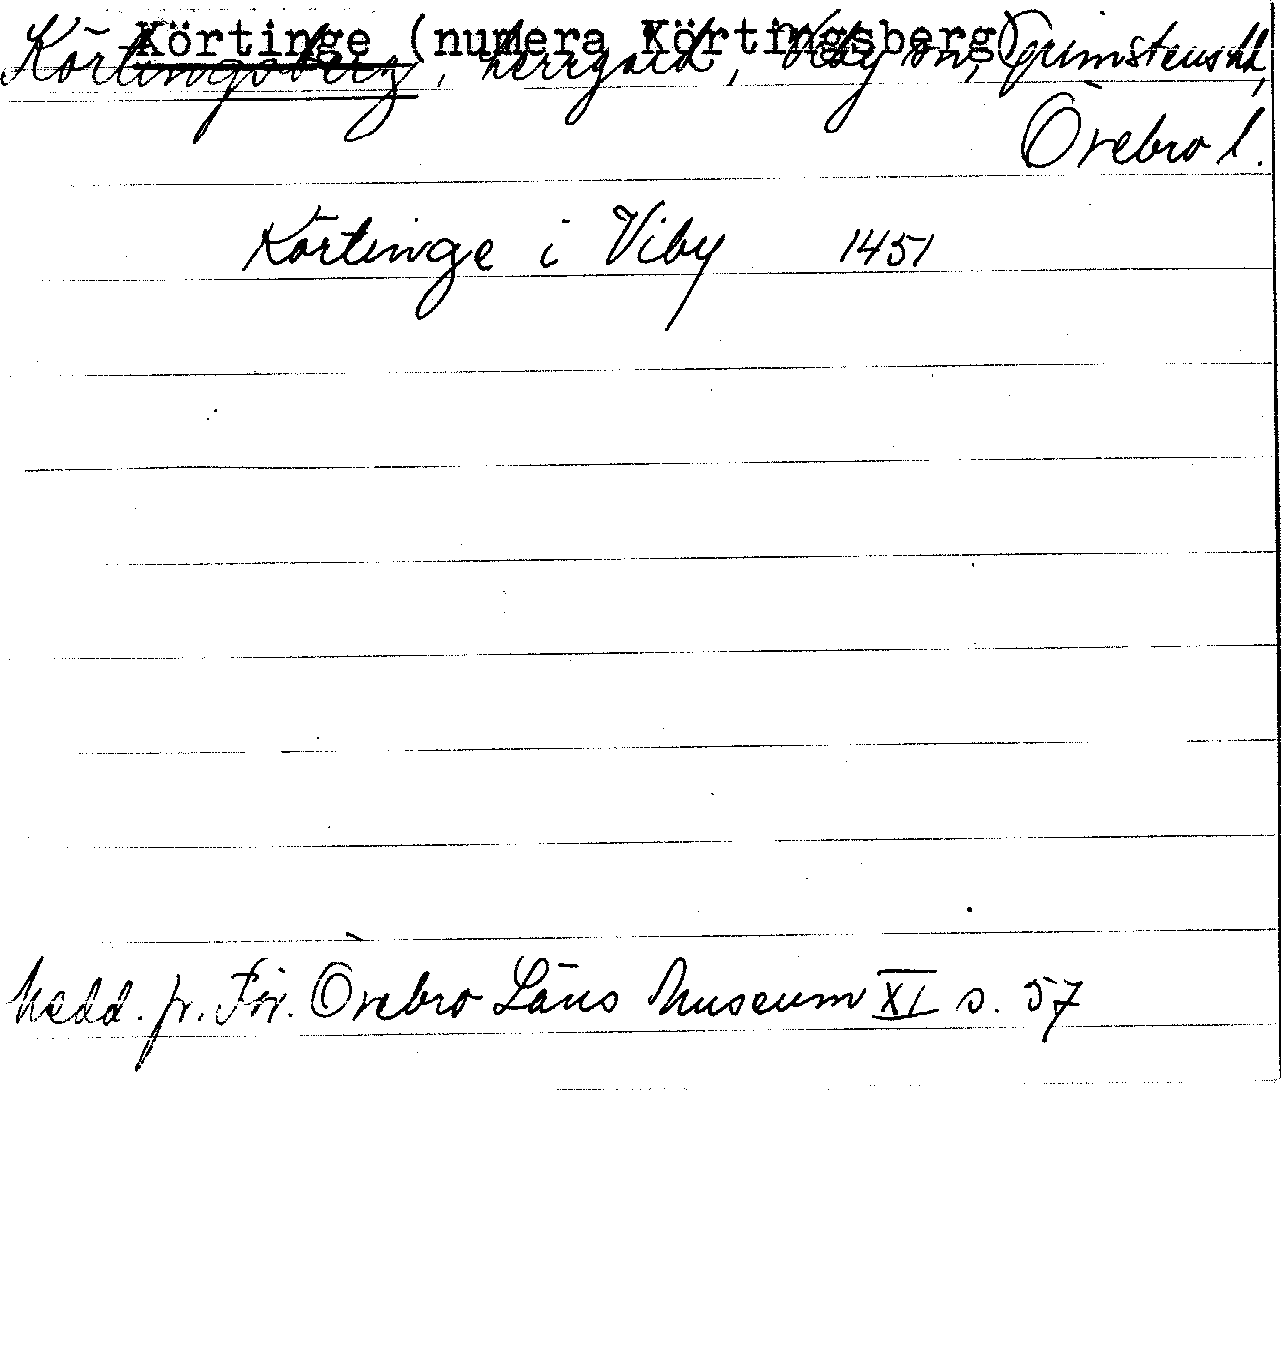 Körtinge (numera Körtingsberg)
Körtingsberg, herrgård, Viby sn, Grimstens hd,
Örebro l.
Körtinge i Viby 1451
Medd. fr. För. Örebro Läns Museum XI s. 57